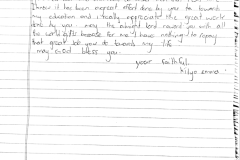 I know it has been a great effort done by you to toward
my education and I really appreciate the great work
done by you. may the almighty lord reward you with all
the world gifts because for me I have nothing to repay
that great job you do towards my life
may God bless you
your faithful